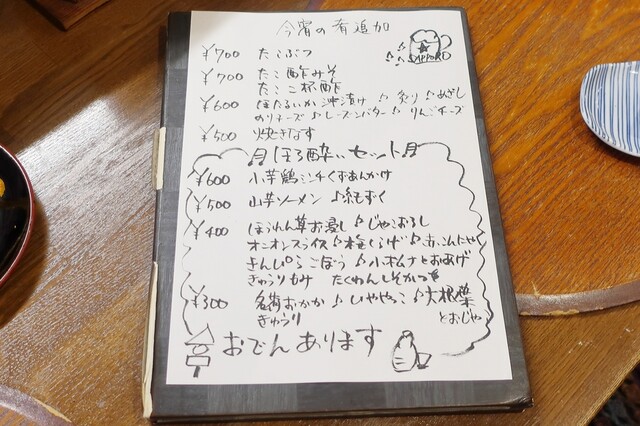 今宵の有追加
SAPPORO
¥700 たこぶつ
¥700 たこ酢みそ
たこ二杯酢
¥600 ほたるいか沖漬け ♪ 炙り ♪ めざし
のりチーズ ♪ レーズンバター ♪ りんごチーズ
¥500 焼きなす
♬ ほろ酔いセット ♬
¥600 小芋鶏ミンチくずあんかけ
¥500 山芋ソーメン ♪ 純もずく
¥400 ほうれん草お浸し ♪ じゃこおろし
オニオンスライス ♪ 梅くらげ ♪ 赤こんにゃく
きんぴらごぼう ♪ 小松なとおあげ
きゅうりもみ たくわんしそかつお
¥300 茗荷おかか ♪ ひややっこ ♪ 大根葉
きゅうり とおじゃこ
おでんあります